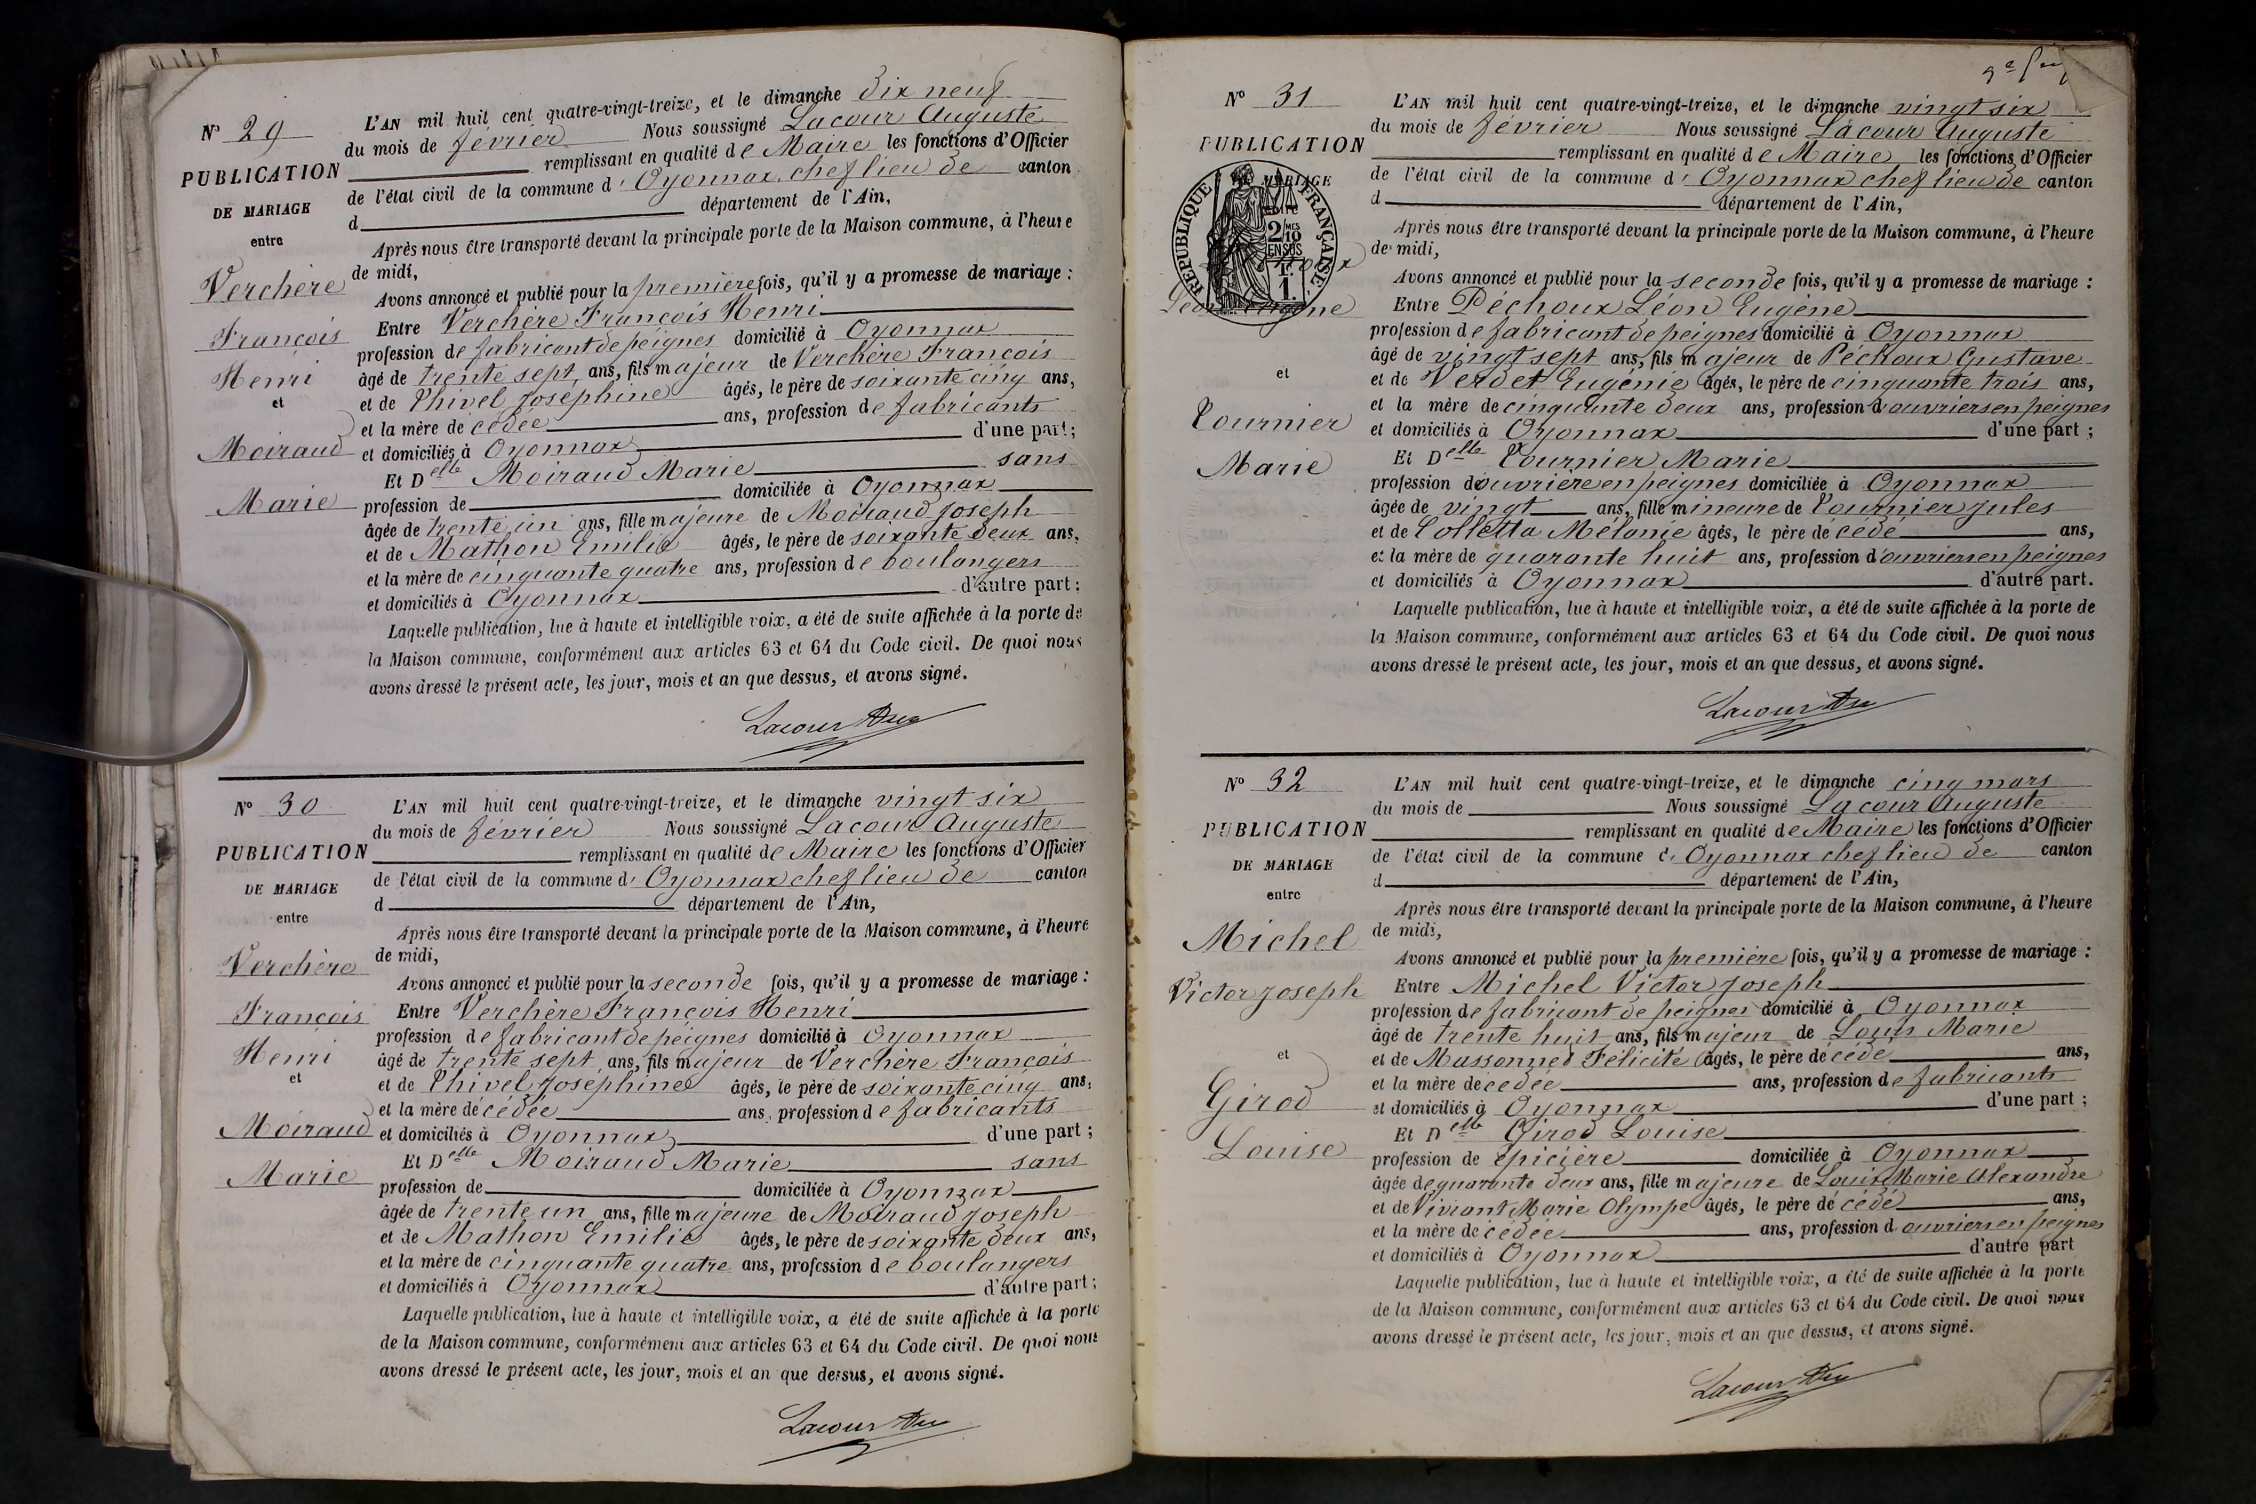 N° 29
PUBLICATION
DE MARIAGE
entre
Verchère
François
Henri
et
Moiraud
Marie
L'AN mil huit cent quatre-vingt-treize, et le dimanche dix neuf
du mois de février Nous soussigné Lacour Auguste
remplissant en qualité de Maire les fonctions d'Officier
de l'état civil de la commune d' Oyonnax, chef lieu de canton
d département de l'Ain,
Après nous être transporté devant la principale porte de la Maison commune, à l'heure
de midi,
Avons annoncé et publié pour la première fois, qu'il y a promesse de mariage :
Entre Verchère François Henri
profession de fabricant de peignes domicilié à Oyonnax
âgé de trente sept ans, fils majeur de Verchère François
et de Thivel Joséphine âgés, le père de soixante cinq ans,
et la mère décédée ans, profession de fabricants
et domiciliés à Oyonnax d'une part ;
Et Delle Moiraud Marie sans
profession de domiciliée à Oyonnax
âgée de trente un ans, fille majeure de Moiraud Joseph
et de Mathon Emilie âgés, le père de soixante deux ans,
et la mère de cinquante quatre ans, profession de boulangers
et domiciliés à Oyonnax d'autre part ;
Laquelle publication, lue à haute et intelligible voix, a été de suite affichée à la porte de
la Maison commune, conformément aux articles 63 et 64 du Code civil. De quoi nous
avons dressé le présent acte, les jour, mois et an que dessus, et avons signé.
Lacour Aug
N° 30
PUBLICATION
DE MARIAGE
entre
Verchère
François
Henri
et
Moiraud
Marie
L'AN mil huit cent quatre-vingt-treize, et le dimanche vingt six
du mois de février Nous soussigné Lacour Auguste
remplissant en qualité de Maire les fonctions d'Officier
de l'état civil de la commune d' Oyonnax chef lieu de canton
d département de l'Ain,
Après nous être transporté devant la principale porte de la Maison commune, à l'heure
de midi,
Avons annoncé et publié pour la seconde fois, qu'il y a promesse de mariage :
Entre Verchère François Henri
profession de fabricant de peignes domicilié à Oyonnax
âgé de trente sept ans, fils majeur de Verchère François
et de Thivel Joséphine âgés, le père de soixante cinq ans,
et la mère décédée ans, profession de fabricants
et domiciliés à Oyonnax d'une part ;
Et Delle Moiraud Marie sans
profession de domiciliée à Oyonnax
âgée de trente un ans, fille majeure de Moiraud Joseph
et de Mathon Emilie âgés, le père de soixante deux ans,
et la mère de cinquante quatre ans, profession de boulangers
et domiciliés à Oyonnax d'autre part ;
Laquelle publication, lue à haute et intelligible voix, a été de suite affichée à la porte
de la Maison commune, conformément aux articles 63 et 64 du Code civil. De quoi nous
avons dressé le présent acte, les jour, mois et an que dessus, et avons signé.
Lacour Aug
N° 31
PUBLICATION
MARIAGE
RÉPUBLIQUE FRANÇAISE
2/10
EN SUS
1F.
Léon Eugène
et
Tournier
Marie
L'AN mil huit cent quatre-vingt-treize, et le dimanche vingt six
du mois de février Nous soussigné Lacour Auguste
remplissant en qualité de Maire les fonctions d'Officier
de l'état civil de la commune d' Oyonnax chef lieu de canton
d département de l'Ain,
Après nous être transporté devant la principale porte de la Maison commune, à l'heure
de midi,
Avons annoncé et publié pour la seconde fois, qu'il y a promesse de mariage :
Entre Péchoux Léon Eugène
profession de fabricant de peignes domicilié à Oyonnax
âgé de vingt sept ans, fils majeur de Péchoux Gustave
et de Verdet Eugénie âgés, le père de cinquante trois ans,
et la mère de cinquante deux ans, profession d'ouvriers en peignes
et domiciliés à Oyonnax d'une part ;
Et Delle Tournier Marie
profession d'ouvrière en peignes domiciliée à Oyonnax
âgée de vingt ans, fille mineure de Tournier Jules
et de Colletta Mélanie âgés, le père décédé ans,
et la mère de quarante huit ans, profession d'ouvriers en peignes
et domiciliés à Oyonnax d'autre part.
Laquelle publication, lue à haute et intelligible voix, a été de suite affichée à la porte de
la Maison commune, conformément aux articles 63 et 64 du Code civil. De quoi nous
avons dressé le présent acte, les jour, mois et an que dessus, et avons signé.
Lacour Aug
N° 32
PUBLICATION
DE MARIAGE
entre
Michel
Victor Joseph
et
Girod
Louise
L'AN mil huit cent quatre-vingt-treize, et le dimanche cinq mars
du mois de Nous soussigné Lacour Auguste
remplissant en qualité de Maire les fonctions d'Officier
de l'état civil de la commune d' Oyonnax chef lieu de canton
d département de l'Ain,
Après nous être transporté devant la principale porte de la Maison commune, à l'heure
de midi,
Avons annoncé et publié pour la première fois, qu'il y a promesse de mariage :
Entre Michel Victor Joseph
profession de fabricant de peignes domicilié à Oyonnax
âgé de trente huit ans, fils majeur de Louis Marie
et de Massonnet Félicité âgés, le père décédé ans,
et la mère décédée ans, profession de fabricants
et domiciliés à Oyonnax d'une part ;
Et Delle Girod Louise
profession de épicière domiciliée à Oyonnax
âgée de quarante deux ans, fille majeure de Louis Marie Alexandre
et de Viviant Marie Olympe âgés, le père décédé ans,
et la mère décédée ans, profession d ouvriers en peignes
et domiciliés à Oyonnax d'autre part
Laquelle publication, lue à haute et intelligible voix, a été de suite affichée à la porte
de la Maison commune, conformément aux articles 63 et 64 du Code civil. De quoi nous
avons dressé le présent acte, les jour, mois et an que dessus, et avons signé.
Lacour Aug